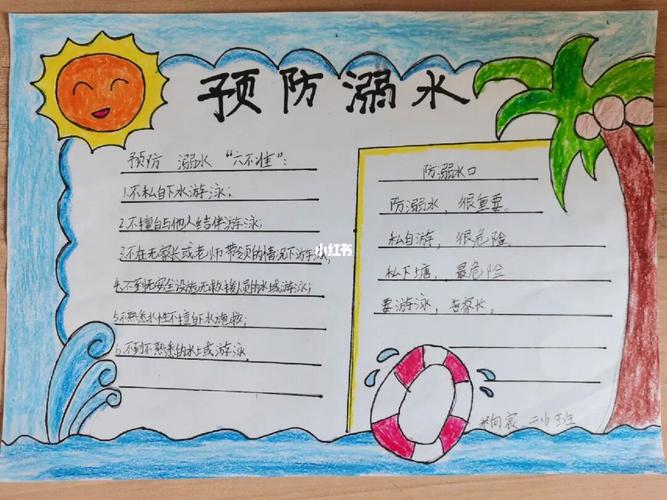 预防溺水
预防 溺水 “六不准”：
1.不私自下水游泳；
2.不擅自与他人结伴游泳；
3.不在无家长或老师带领的情况下游泳；
4.不到无安全设施无救援人员的水域游泳；
5.不熟悉水性不擅自下水施救；
6.不到不熟悉的水上或游泳
防溺水口
防溺水，很重要。
私自游，很危险。
私下塘，最危险
要游泳，告家长，
小红书
向宸 二小班